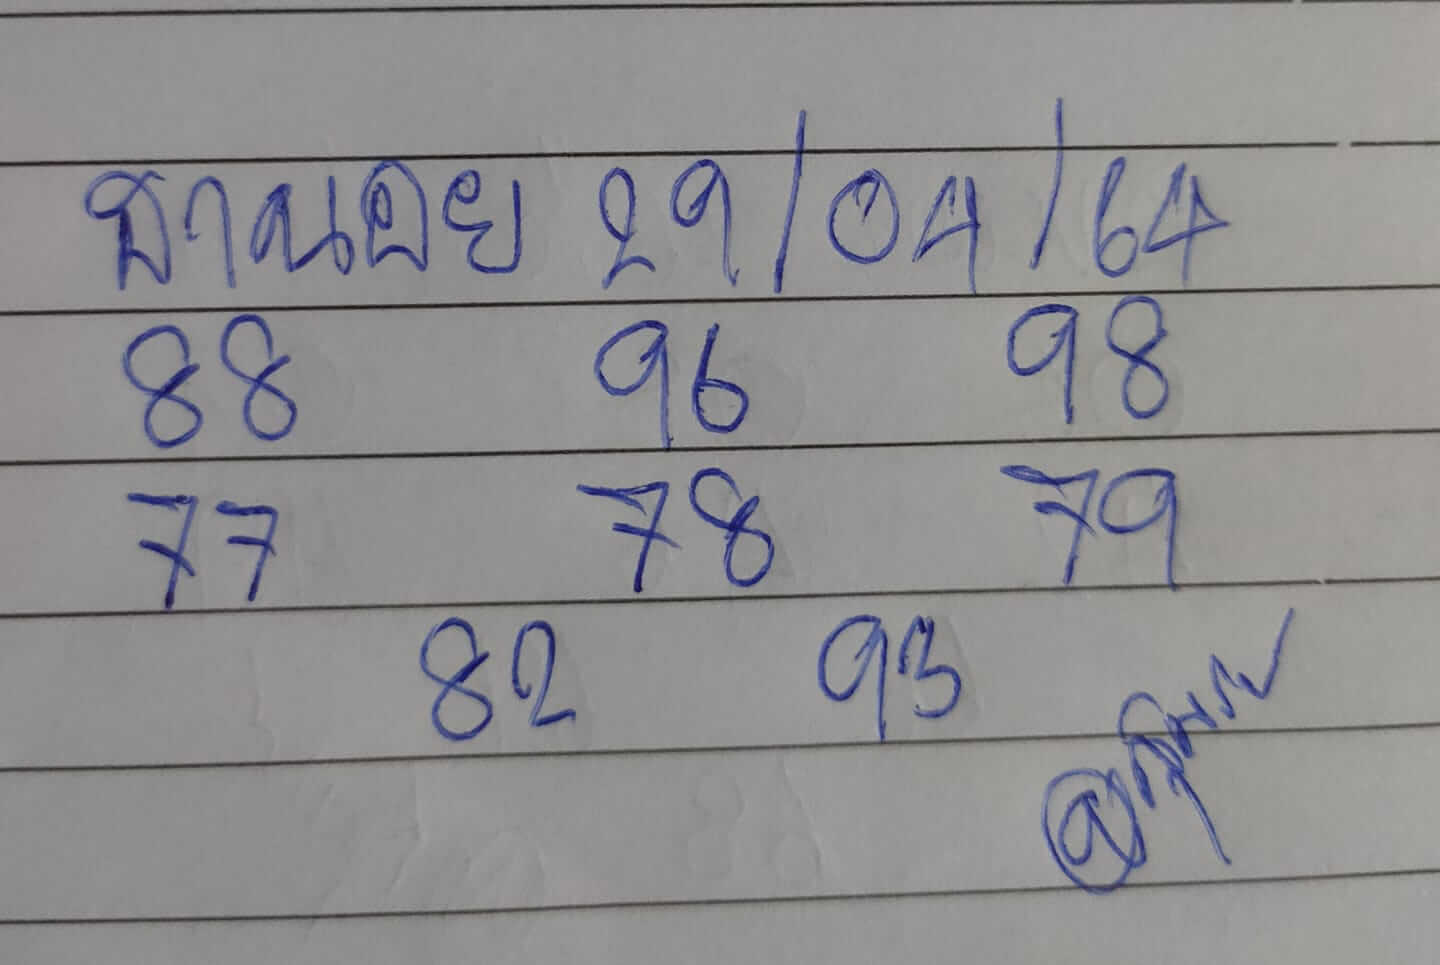 ฮานอย 29/04/64
88 96 98
77 78 79
82 93